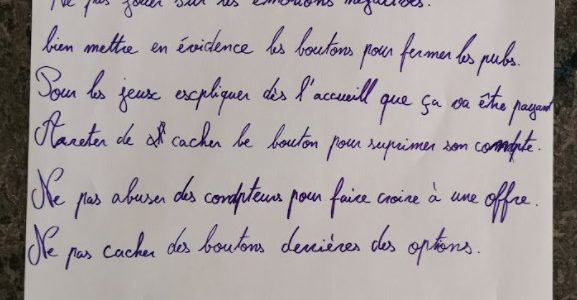 Ne pas jouer sur les émotions négatives.
bien mettre en évidence les boutons pour fermer les pubs.
Pour les jeux escpliquer dès l'accueill que ça va être payant
Arreter de cacher le bouton pour suprimer son compte.
Ne pas abuser des compteurs pour faire croire à une offre.
Ne pas cacher des boutons derrières des options.